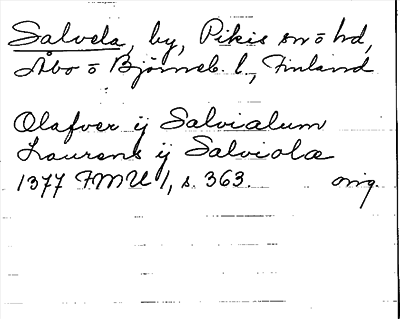 Salvela, by, Pikis sn o hd,
Åbo o Björneb. l., Finland
Olafver ij Salvialum
Laurens ij Salviola
1377 FMU 1, s. 363. orig.